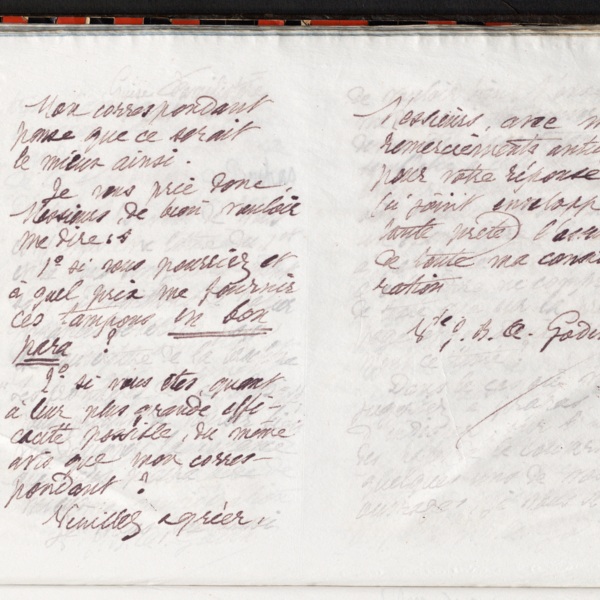 Mon correspondant
pense que ce serait
le mieux ainsi.
Je vous prie donc,
Messieurs, de bien vouloir
me dire :
1° si vous pourriez et
à quel prix me fournir
ces tampons en bon
para ?
2° si vous êtes, quant
à leur plus grande effi-
cacité possible, du même
avis que mon corres-
pondant ?
Veuillez agréer,
Messieurs, avec m
remerciements anti
pour votre réponse
(ci joint envelopp
toute prête) l'assu
de toute ma consi
ration
Vve J. B. A. Godi